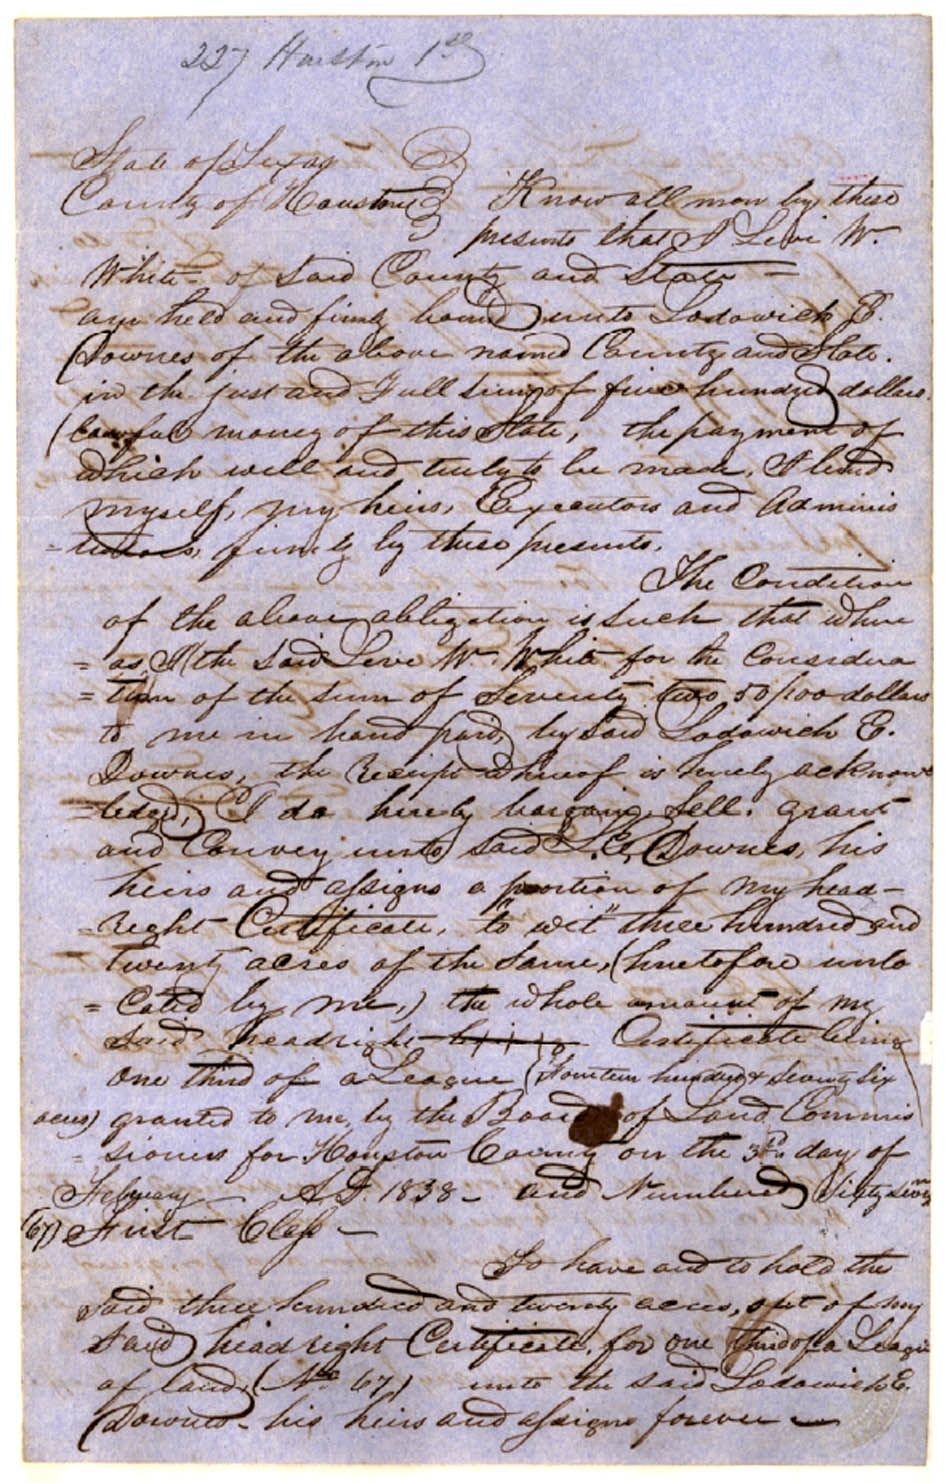 227 Houston 1st
State of Texas
County of Houston Know all men by these
presents that I Levi W.
White - of said County and State -
am held and firmly bound unto Lodowick E.
Downes of the above named County and State.
in the just and Full sum of five hundred dollars.
lawful money of this State, the payment of
which well and truly to be made, I bind
myself, my heirs, Executors and Adminis
-trators, firmly by these presents.
The Condition
of the above obligation is such that where
= as, I the said Levi W. White for the considera
= tion of the sum of Seventy two 50/100 dollars
to me in hand paid, by said Lodowick E.
Downes, the receipt whereof is hereby acknow
=ledged, I do hereby bargain, sell, grant
and Convey unto said L. E. Downes, his
heirs and assigns a portion of my head-
right Certificate, "to wit" three hundred and
twenty acres of the same, (heretofore unlo
= cated by me,) the whole amount of my
said headright Certificate being
one third of a League (Fourteen hundred & seventy six
acres) granted to me, by the Board of Land Commis
= sioners for Houston County on the 3rd day of
February - A.D. 1838 - and Numbered Sixty seven
(67) First Class -
To have and to hold the
said three hundred and twenty acres, out of my
said headright Certificate, for one third of a League
of land, (No 67) unto the said Lodowick E.
Downes - his heirs and assigns forever -